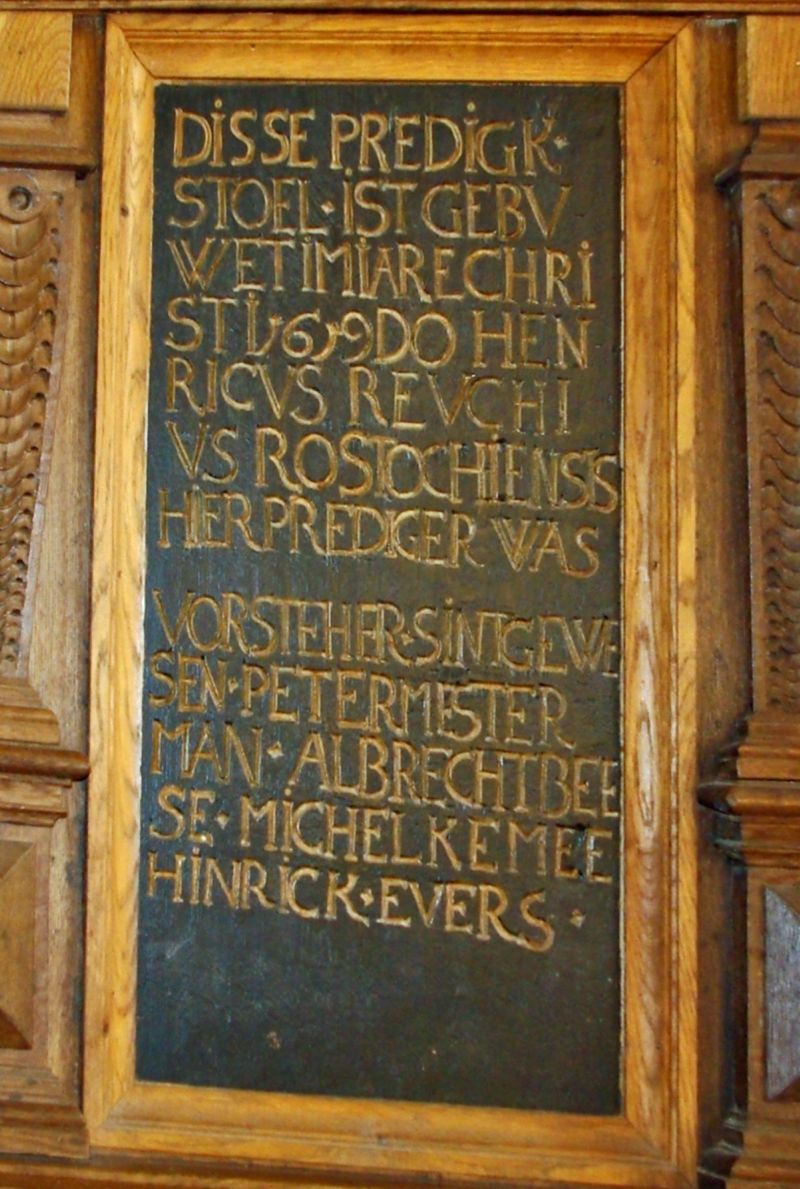 DISSE PREDIGK·
STOEL·IST GEBV
WET IM IARE CHRI
STI 1659 DO HEN
RICVS REVCHI
VS ROSTOCHIENSIS
HIER PREDIGER WAS
VORSTEHER·SINT GEWE
SEN·PETER MESTER
MAN·ALBRECHT BEE
SE·MICHEL KEMEE
HINRICK·EVERS·